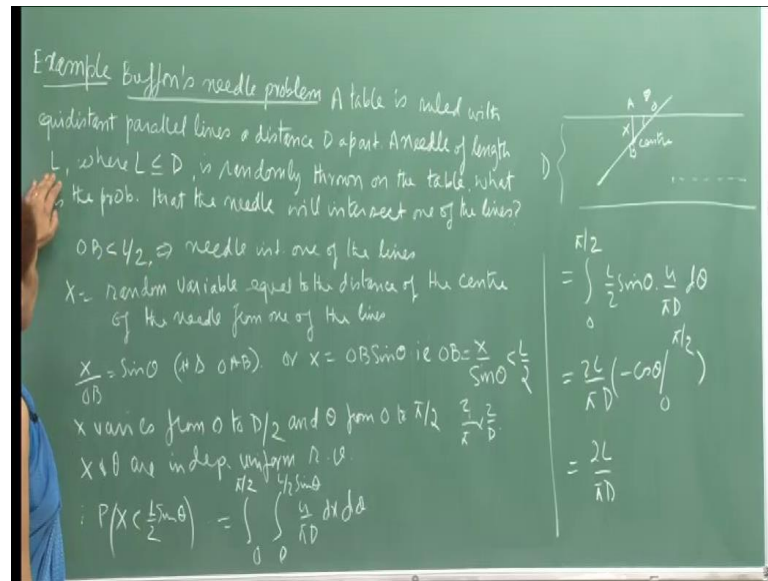 Example Buffon's needle problem A table is ruled with
equidistant parallel lines a distance D apart. A needle of length
L, where L ≤ D, is randomly thrown on the table, what
is the prob. that the needle will intersect one of the lines?
OB < L/2, ⇒ needle int. one of the lines
X = random variable equal to the distance of the centre
of the needle from one of the lines
X/OB = Sinθ (rt Δ OAB). or X = OB Sinθ ie OB = X/Sinθ < L/2
X varies from 0 to D/2 and θ from 0 to π/2 2/π × 2/D.
X & θ are indep. uniform R.V.
∴ P(X < L/2 Sinθ) = ∫_0^{π/2} ∫_0^{L/2 Sinθ} 4/πD dx dθ
A θ O
X
B centre
D
= ∫_0^{π/2} L/2 Sinθ · 4/πD dθ
= 2L/πD (-Cosθ |_0^{π/2})
= 2L/πD